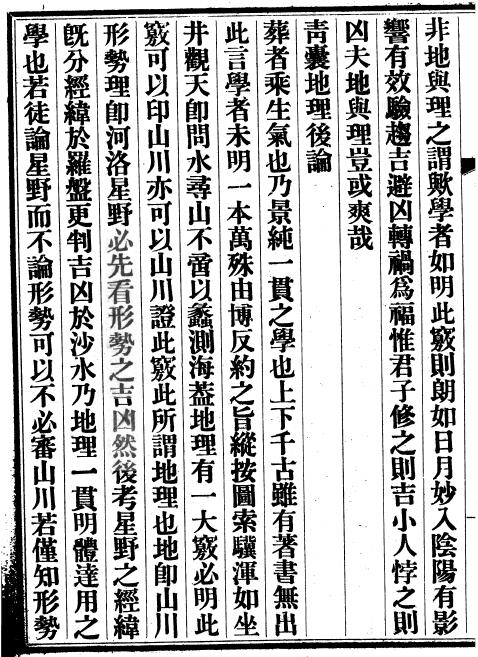 非地與理之謂歟學者如明此竅則朗如日月妙入陰陽有影
響有效驗趨吉避凶轉禍爲福惟君子修之則吉小人悖之則
凶夫地與理豈或爽哉
靑囊地理後論
葬者乘生氣也乃景純一貫之學也上下千古雖有著書無出
此言學者未明一本萬殊由博反約之旨縱按圖索驥渾如坐
井觀天卽問水尋山不啻以蠡測海葢地理有一大竅必明此
竅可以印山川亦可以山川證此竅此所謂地理也地卽山川
形勢理卽河洛星野必先看形勢之吉凶然後考星野之經緯
旣分經緯於羅盤更判吉凶於沙水乃地理一貫明體達用之
學也若徒論星野而不論形勢可以不必審山川若僅知形勢